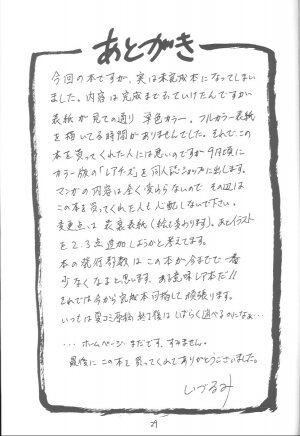 あとがき
今回の本ですが、実は未完成本になってしまい
ました。内容は完成までもっていけたんですが
表紙が見ての通り、単色カラー。フルカラー表紙
を描いてる時間がありませんでした。それでこの
本を買ってくれた人には悪いのですが9月頃に
カラー版の「レアチーズ」を同人誌ショップに出します。
マンガの内容は全く変わらないので その辺は
この本を買ってくれた人も心配しないで下さい。
変更点は表裏表紙(絵も変わります)。あとイラスト
を2、3点追加しようかと考えてます。
本の発行部数はこの本が今までで一番
少なくなると思います。ある意味レア本だ!!
それでは今から完成本目指して頑張ります。
いつもは夏コミ原稿終了後はしばらく遊べるのになぁ…
… ホームページ まだです。すみません。
最後にこの本を買ってくれてありがとうございました。
いづるみ
29